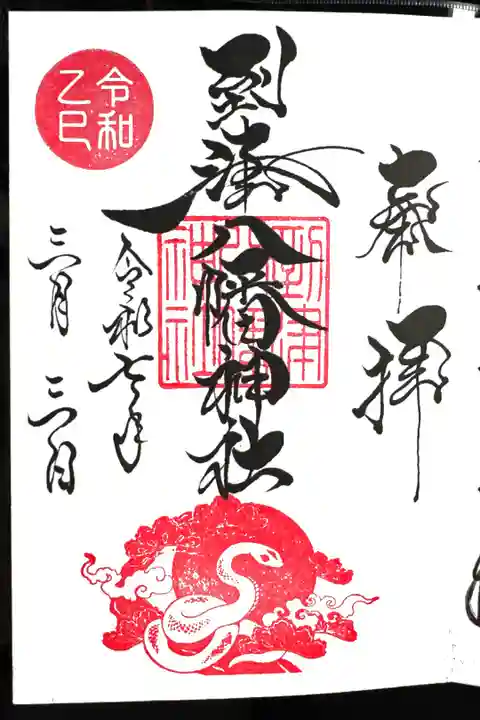 奉拝
到津八幡神社
到津八幡神社
令和七年
三月三日
令和
乙巳